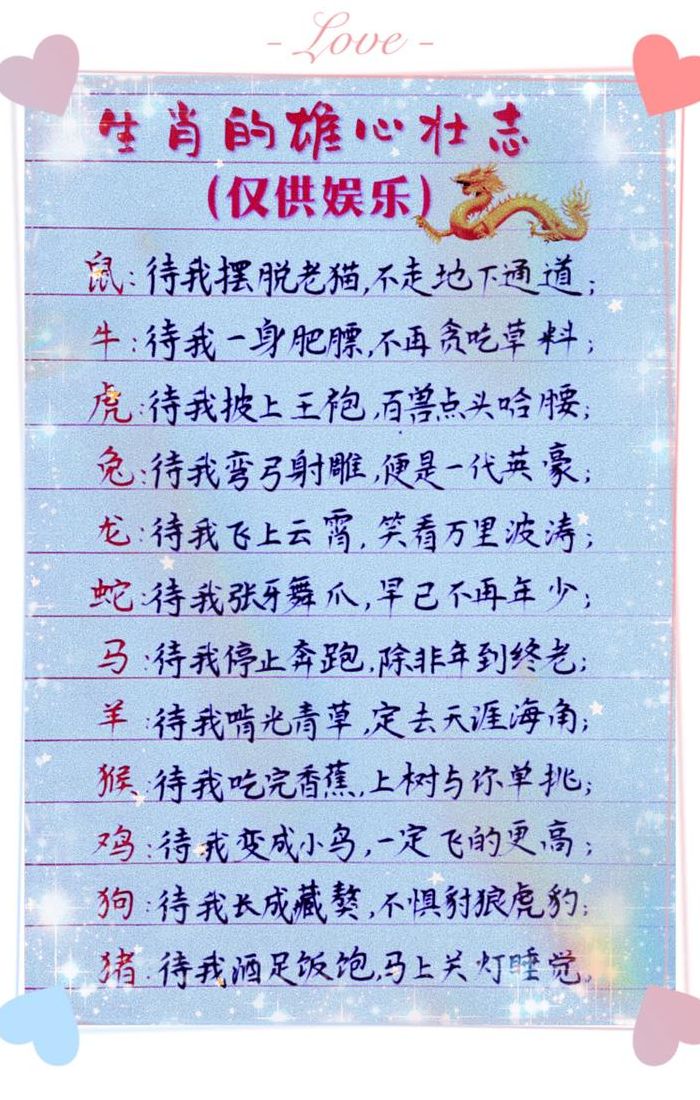 - Love -
生肖的雄心壮志
(仅供娱乐)
鼠:待我摆脱老猫,不走地下通道;
牛:待我一身肥膘,不再贪吃草料;
虎:待我披上王袍,百兽点头哈腰;
兔:待我弯弓射雕,便是一代英豪;
龙:待我飞上云霄,笑看万里波涛;
蛇:待我张牙舞爪,早已不再年少;
马:待我停止奔跑,除非年到终老;
羊:待我啃光青草,定去天涯海角;
猴:待我吃完香蕉,上树与你单挑;
鸡:待我变成小鸟,一定飞的更高;
狗:待我长成藏獒,不惧豺狼虎豹;
猪:待我酒足饭饱,马上关灯睡觉。